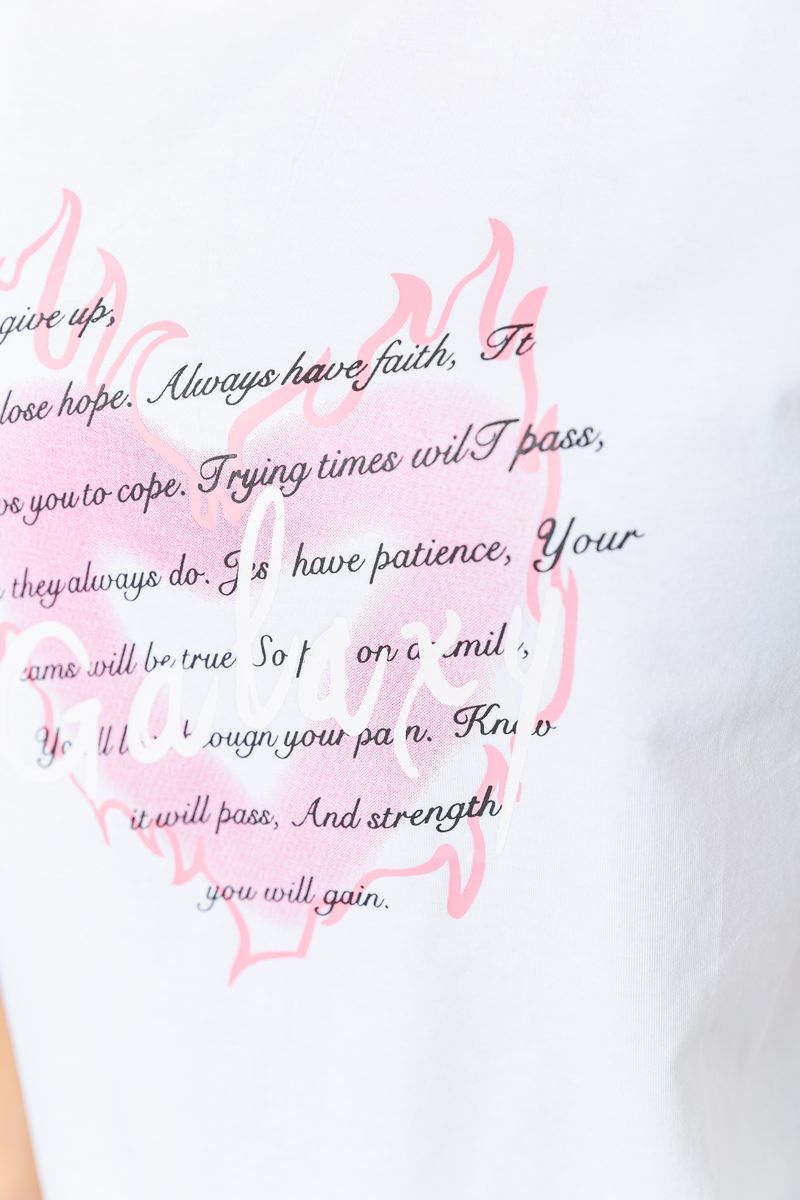 give up,
lose hope. Always have faith, It
you to cope. Trying times wilT pass,
they always do. Jes have patience, Your
will be true So on
your pain. Know
it will pass, And strength
you will gain.
Galaxy